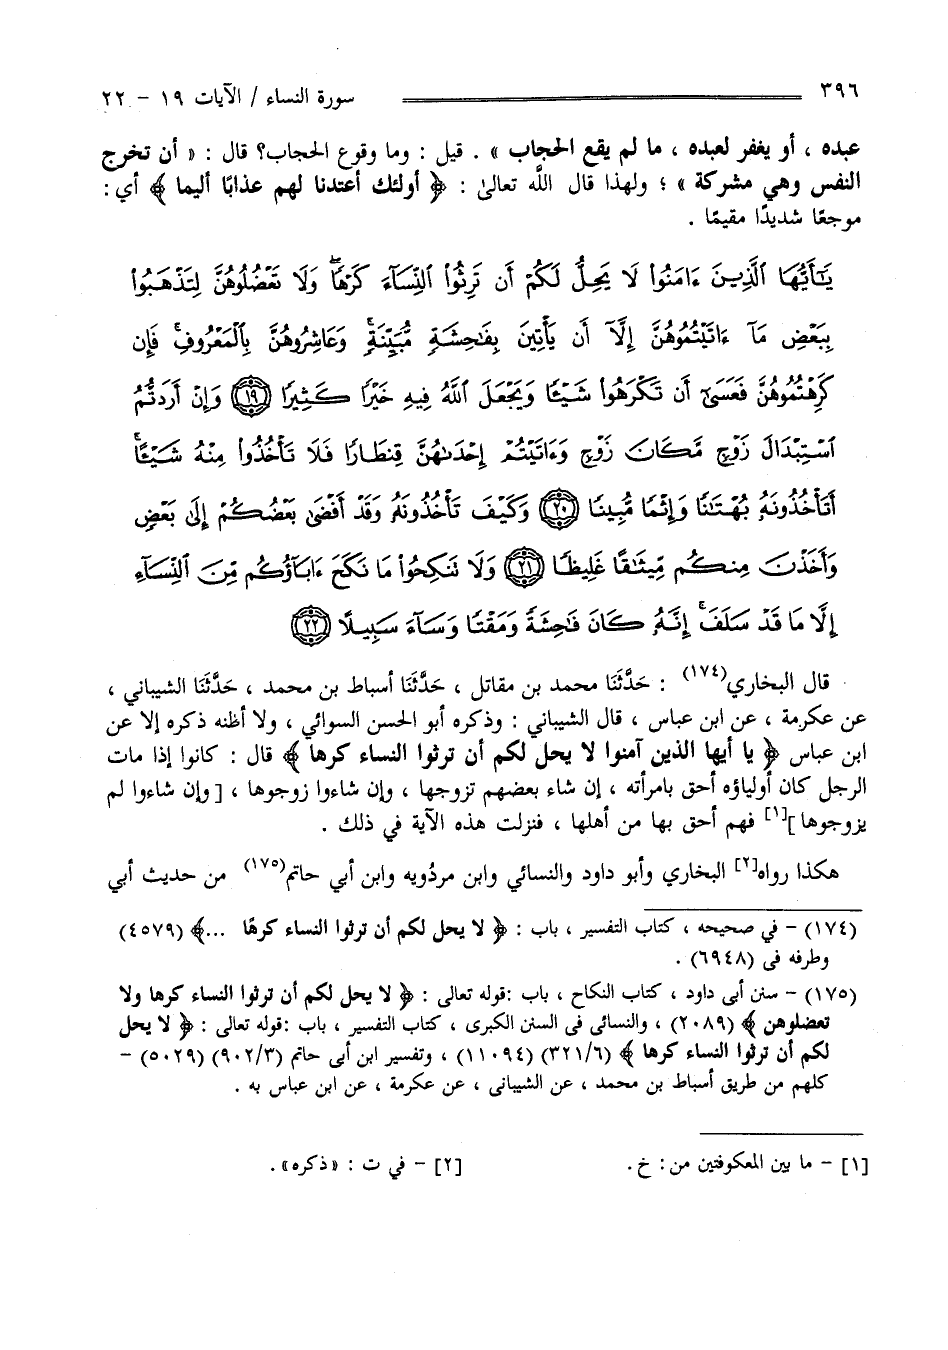 ٣٩٦ سورة النساء / الآيات ١٩ - ٢٢
عبده ، أو يغفر لعبده ، ما لم يقع الحجاب » . قيل : وما وقوع الحجاب؟ قال : « أن تخرج
النفس وهي مشركة » ؛ ولهذا قال الله تعالىٰ : ﴿ أولئك أعتدنا لهم عذابًا أليما ﴾ أي :
موجعًا شديدًا مقيمًا .
يَٰٓأَيُّهَا ٱلَّذِينَ ءَامَنُوا۟ لَا يَحِلُّ لَكُمْ أَن تَرِثُوا۟ ٱلنِّسَآءَ كَرْهًا ۖ وَلَا تَعْضُلُوهُنَّ لِتَذْهَبُوا۟
بِبَعْضِ مَآ ءَاتَيْتُمُوهُنَّ إِلَّآ أَن يَأْتِينَ بِفَٰحِشَةٍ مُّبَيِّنَةٍ ۚ وَعَاشِرُوهُنَّ بِٱلْمَعْرُوفِ ۚ فَإِن
كَرِهْتُمُوهُنَّ فَعَسَىٰٓ أَن تَكْرَهُوا۟ شَيْـًٔا وَيَجْعَلَ ٱللَّهُ فِيهِ خَيْرًا كَثِيرًا ١٩ وَإِنْ أَرَدتُّمُ
ٱسْتِبْدَالَ زَوْجٍ مَّكَانَ زَوْجٍ وَءَاتَيْتُمْ إِحْدَىٰهُنَّ قِنطَارًا فَلَا تَأْخُذُوا۟ مِنْهُ شَيْـًٔا ۚ
أَتَأْخُذُونَهُۥ بُهْتَٰنًا وَإِثْمًا مُّبِينًا ٢٠ وَكَيْفَ تَأْخُذُونَهُۥ وَقَدْ أَفْضَىٰ بَعْضُكُمْ إِلَىٰ بَعْضٍ
وَأَخَذْنَ مِنكُم مِّيثَٰقًا غَلِيظًا ٢١ وَلَا تَنكِحُوا۟ مَا نَكَحَ ءَابَآؤُكُم مِّنَ ٱلنِّسَآءِ
إِلَّا مَا قَدْ سَلَفَ ۚ إِنَّهُۥ كَانَ فَٰحِشَةً وَمَقْتًا وَسَآءَ سَبِيلًا ٢٢
قال البخاري(١٧٤) : حَدَّثَنَا محمد بن مقاتل ، حَدَّثَنَا أسباط بن محمد ، حَدَّثَنَا الشيباني ،
عن عكرمة ، عن ابن عباس ، قال الشيباني : وذكره أبو الحسن السوائي ، ولا أظنه ذكره إلا عن
ابن عباس ﴿ يا أيها الذين آمنوا لا يحل لكم أن ترثوا النساء كرها ﴾ قال : كانوا إذا مات
الرجل كان أولياؤه أحق بامرأته ، إن شاء بعضهم تزوجها ، وإن شاءوا زوجوها ، [ وإن شاءوا لم
يزوجوها ][١] فهم أحق بها من أهلها ، فنزلت هذه الآية في ذلك .
هكذا رواه[٢] البخاري وأبو داود والنسائي وابن مردُويه وابن أبي حاتم(١٧٥) من حديث أبي
(١٧٤) - في صحيحه ، كتاب التفسير ، باب : ﴿ لا يحل لكم أن ترثوا النساء كرهًا ...﴾ (٤٥٧٩)
وطرفه فى (٦٩٤٨) .
(١٧٥) - سنن أبى داود ، كتاب النكاح ، باب :قوله تعالى : ﴿ لا يحل لكم أن ترثوا النساء كرها ولا
تعضلوهن ﴾ (٢٠٨٩) ، والنسائى فى السنن الكبرى ، كتاب التفسير ، باب :قوله تعالى : ﴿ لا يحل
لكم أن ترثوا النساء كرها ﴾ (٣٢١/٦) (١١٠٩٤) ، وتفسير ابن أبى حاتم (٩٠٢/٣) (٥٠٢٩) -
كلهم من طريق أسباط بن محمد ، عن الشيبانى ، عن عكرمة ، عن ابن عباس به .
[١] - ما بين المعكوفتين من: خ. [٢] - في ت : «ذكره».